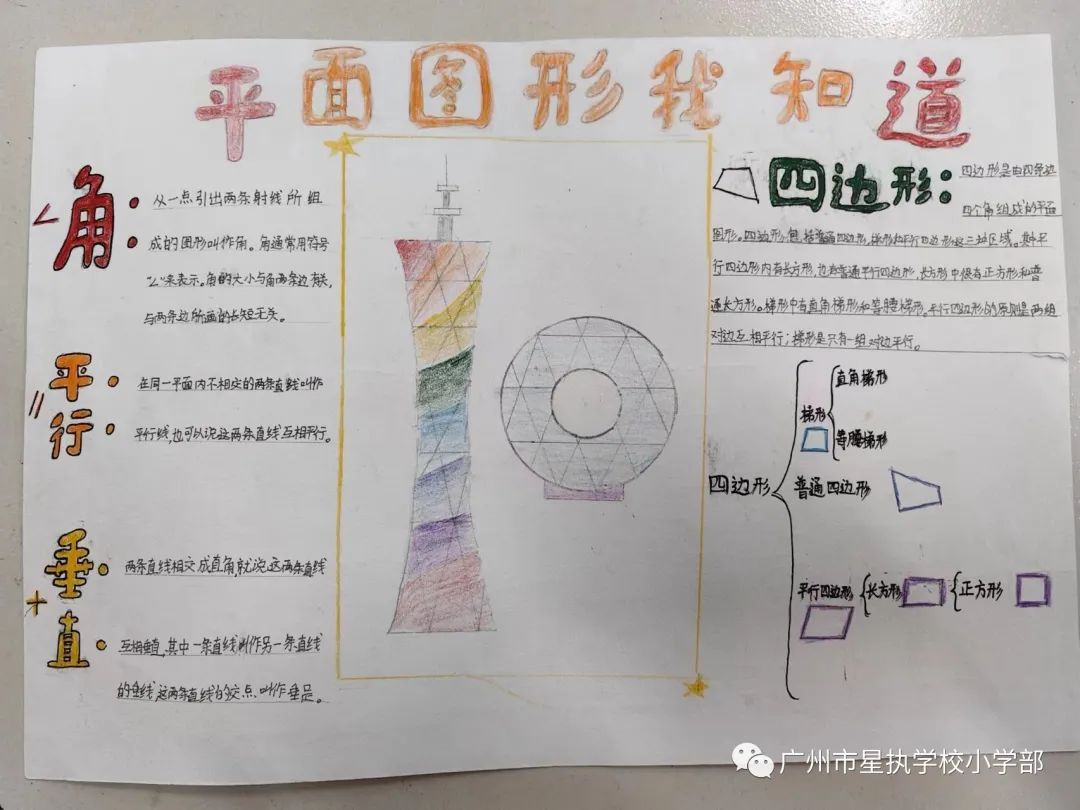 平面图形我知道
角：
从一点引出两条射线所组
成的图形叫作角。角通常用符号
“∠”来表示。角的大小与角两条边有关，
与两条边所画的长短无关。
平行：
在同一平面内不相交的两条直线叫作
平行线，也可以说这两条直线互相平行。
垂直：
两条直线相交成直角，就说这两条直线
互相垂直，其中一条直线叫作另一条直线
的垂线，这两条直线的交点叫作垂足。
四边形：
四边形是由四条边
四个角组成的平面
图形。四边形包括普通四边形，梯形和平行四边形这三种区域。其中平
行四边形内有长方形，也有普通平行四边形，长方形中保有正方形和普
通长方形。梯形中有直角梯形和等腰梯形。平行四边形的原则是两组
对边互相平行；梯形是只有一组对边平行。
四边形
梯形
直角梯形
等腰梯形
普通四边形
平行四边形
长方形
正方形
广州市星执学校小学部